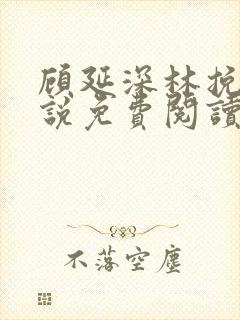 顾延深林挽
說免費閱讀
不落空塵